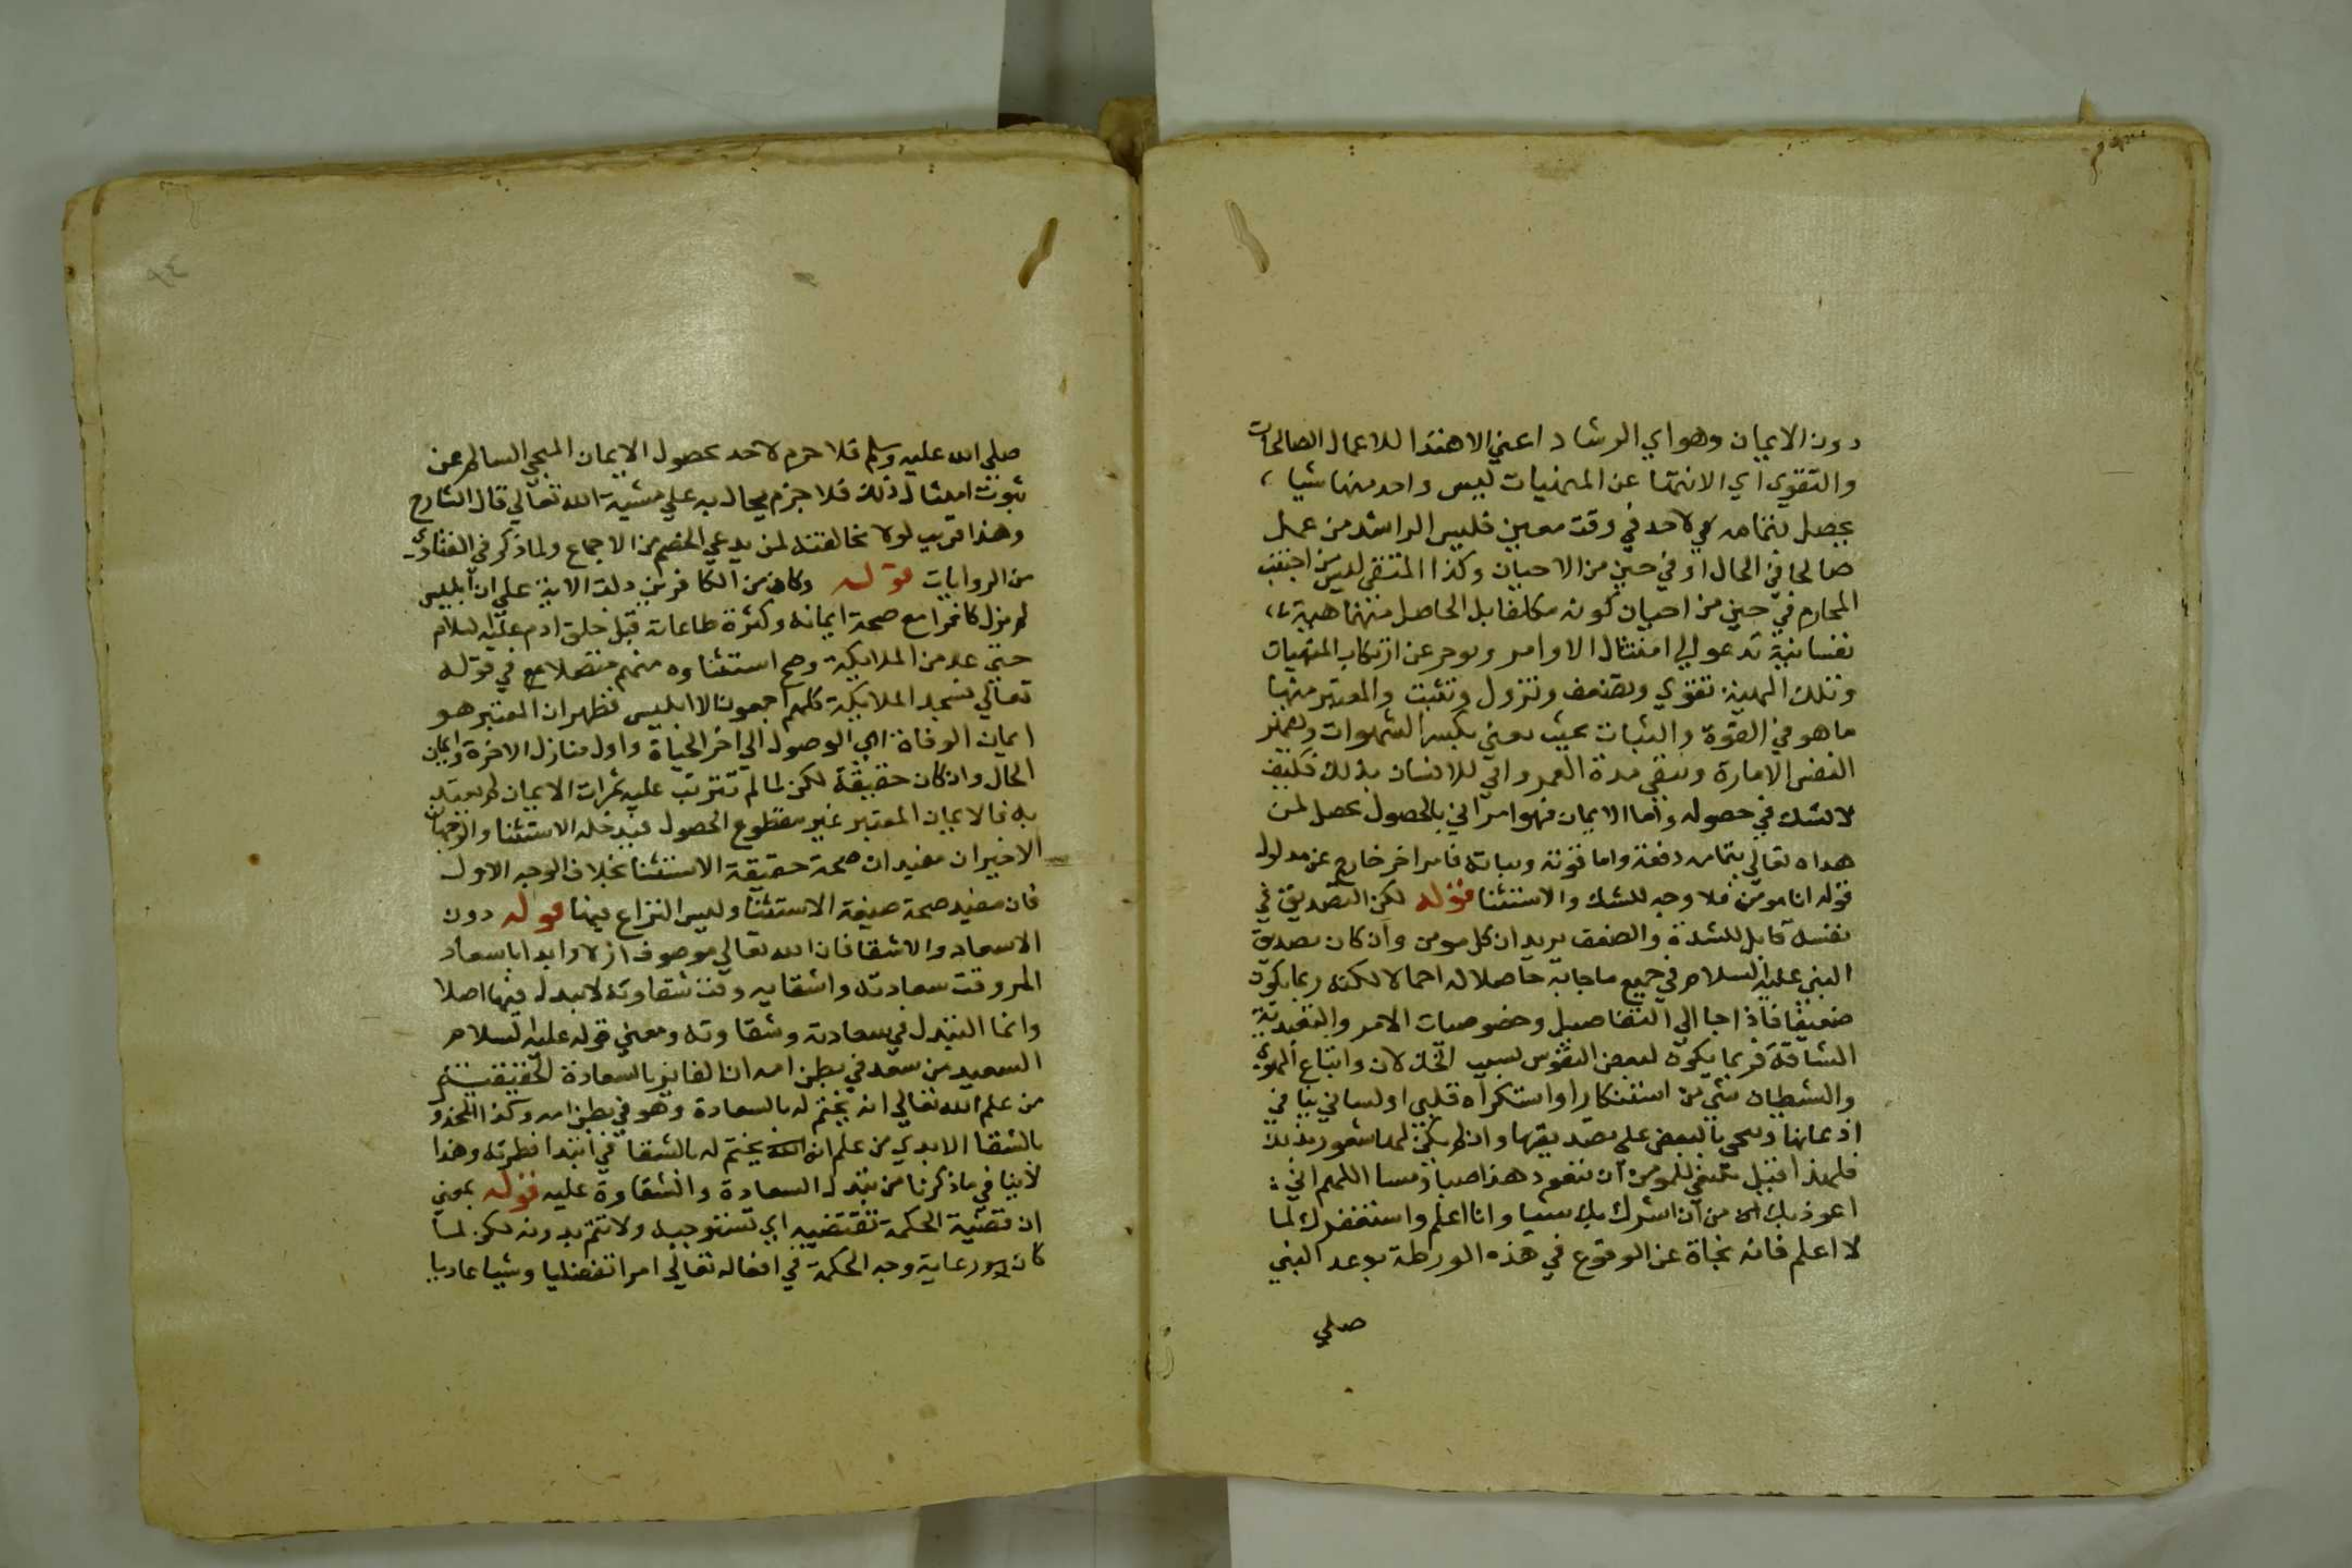 دون الايمان وهو اي الرشاد اعني الاهتدا للاعمال الصالحات
والتقوي اي الانتها عن المنهيات ليس واحد منها شيا
يحصل بتمامه لاحد في وقت معين فليس الراشد من عمل
صالحا في الحال او في حين من الاحيان وكذا المتقي ليس من اجتنب
المحارم في حين من احيان كونه مكلفا بل الحاصل منهما هيية
نفسانية تدعو الي امتثال الاوامر وتوحر عن ارتكاب المنهيات
وتلك الهيية تقوي وتضعف وتزول وتثبت والمعتبر منها
ما هو في القوة والثبات بحيث يكسر الشهوات ويقهر
النفس الامارة ويبقي مدة العمر واني للانسان بذلك فكيف
لا شك في حصوله واما الايمان فهو امر اني بالحصول يحصل لمن
هداه تعالي بتمامه دفعة واما قوته وثباته فامر اخر خارج عن مدلول
قوله انا مومن فلا وجه للشك والاستثنا قوله لكن التصديق في
نفسه قابل للشدة والضعف يريد ان كل مومن وان كان تصديق
النبي عليه السلام في جميع ما جا به حاصلا له اجمالا لكنه ربما يكون
ضعيفا فاذا جا الي التفاصيل وخصوصيات الامر والتعبدية
الشاقة فربما يكون لبعض النفوس بسبب الخذلان واتباع الهوي
والشيطان شي من استنكار او استكراه قلبي او لساني ينافي
اذعانها ويحي بالبعض علي تصديقها وان لم يكن لها شعور بذلك
فلهذا قيل ينبغي للمومن ان يتعوذ هذا صباح مسا اللهم اني
اعوذ بك من ان اشرك بك شيا وانا اعلم واستغفرك لما
لا اعلم فانه نجاة عن الوقوع في هذه الورطة بوعد النبي
صلي
صلي الله عليه وسلم فلا جزم لاحد بحصول الايمان المنجي السالم عن
ثبوت امثال ذلك فلا جزم يحال به علي مشية الله تعالي قال الشارح
وهذا قريب لولا مخالفته لمن يدعي الخصم من الاجماع ولما ذكر في الفتاوي
من الروايات قوله وكان من الكافرين دلت الاية علي ان ابليس
لم يزل كافرا مع صحة ايمانه وكثرة طاعاته قبل خلق ادم عليه السلام
حتي عد من الملايكة وصح استثناوه منهم متصلا في قوله
تعالي فسجد الملايكة كلهم اجمعون الا ابليس فظهر ان المعتبر هو
ايمان الوفاة اي الوصول الي اخر الحياة واول منازل الاخرة وايمان
الحال وان كان حقيقة لكن لما لم تترتب عليه ثمرات الايمان لم يعتد
به فالايمان المعتبر غير مقطوع الحصول فيدخله الاستثنا والوجهان
الاخيران مفيدان صحة حقيقة الاستثنا بخلاف الوجه الاول
فانه مفيد صحة صيغة الاستثنا وليس النزاع فيها قوله دون
الاسعاد والاشقا فان الله تعالي موصوف ازلا وابدا باسعاد
المر وقت سعادته واشقايه وقت شقاوته لا تبدل فيها اصلا
وانما التبدل في سعادته وشقاوته ومعني قوله عليه السلام
السعيد من سعد في بطن امه ان الفايز بالسعادة الحقيقية
من علم الله تعالي انه يختم له بالسعادة وهو في بطن امه وكذا
بالشقا الابدي من علم انه يختم له بالشقا في ابتدا فطرته وهذا
لا ينافي ما ذكرنا من تبدل السعادة والشقاوة عليه قوله بمعني
ان قضية الحكمة تقتضيه اي تستوجبه ولا تتم بدونه لكن لما
كان رعاية وجه الحكمة في افعاله تعالي امرا تفضليا وشيا عاديا